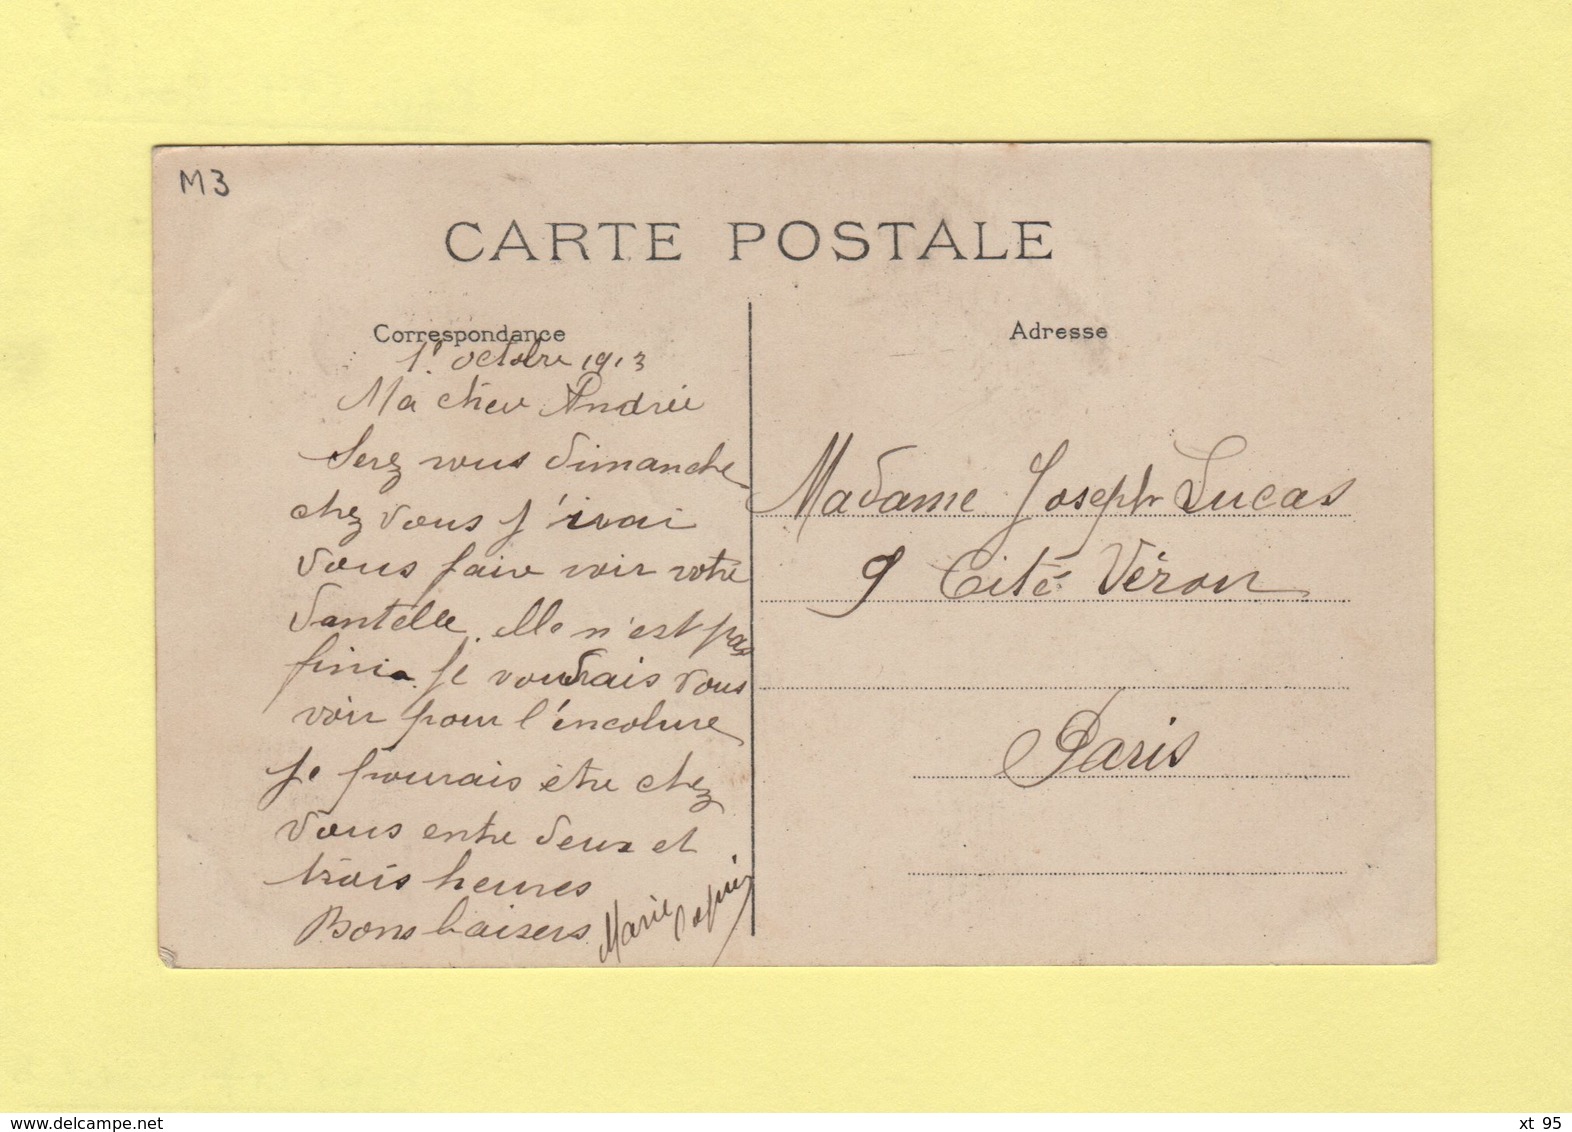 M3
CARTE POSTALE
Correspondance
1er octobre 1913
Ma cher Andrée
Serez vous dimanche
chez vous j'irai
vous faire voir votre
dantelle. elle n'est pas
finie. Je voudrais vous
voir pour l'encolure
je pourais être chez
vous entre deux et
trois heures
Bons baisers Marie
Adresse
Madame Joseph Lucas
9 Cité Véron
Paris
www.delcampe.net
xt 95